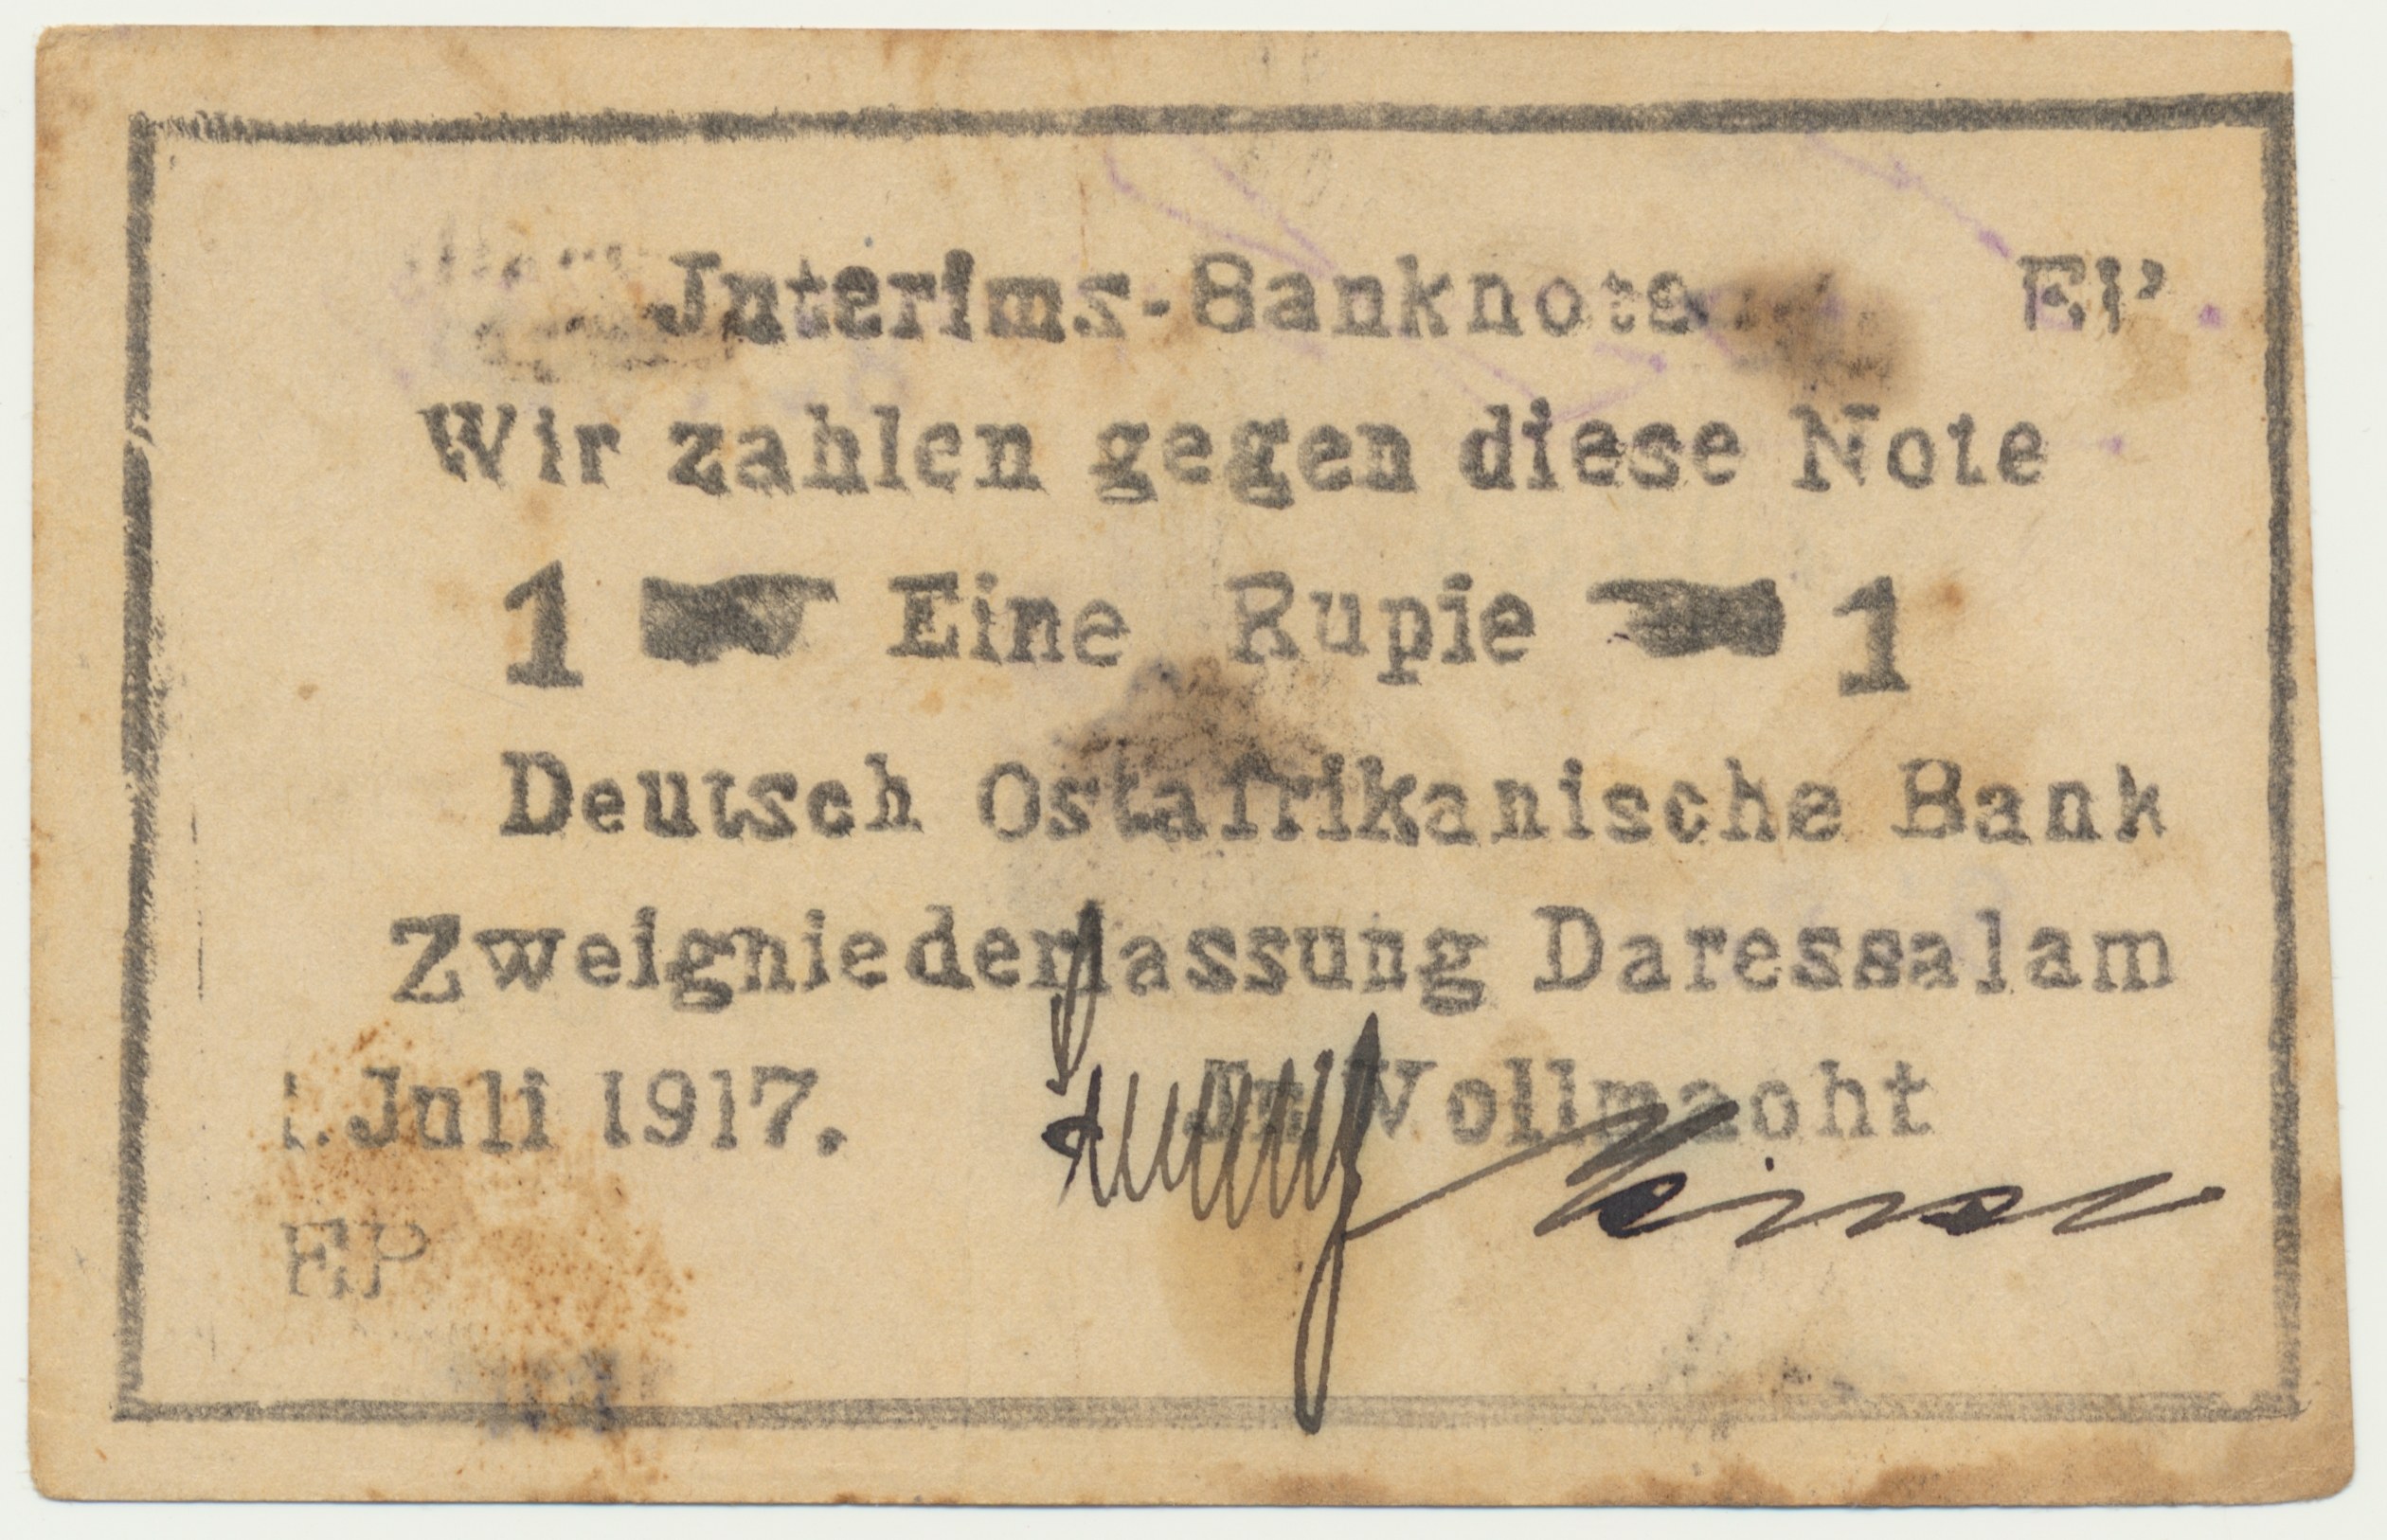 Interims-Banknote EP
Wir zahlen gegen diese Note
1 Eine Rupie 1
Deutsch Ostafrikanische Bank
Zweigniederlassung Daressalam
1.Juli 1917. In Vollmacht
EP